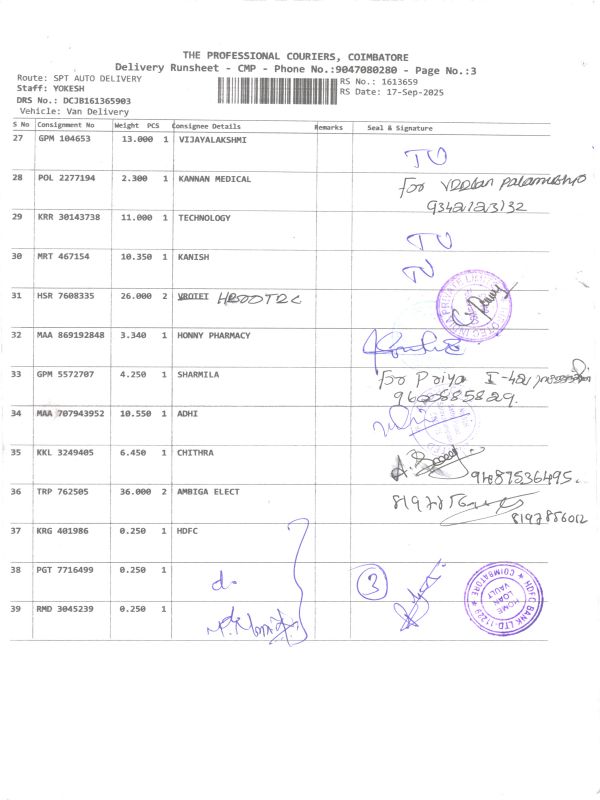 THE PROFESSIONAL COURIERS, COIMBATORE
Delivery Runsheet - CMP - Phone No.:9047080280 - Page No.:3
Route: SPT AUTO DELIVERY
RS No.: 1613659
Staff: YOKESH
RS Date: 17-Sep-2025
DRS No.: DCJB161365903
Vehicle: Van Delivery
S No Consignment No Weight PCS Consignee Details Remarks Seal & Signature
27 GPM 104653 13.000 1 VIJAYALAKSHMI
28 POL 2277194 2.300 1 KANNAN MEDICAL For
29 KRR 30143738 11.000 1 TECHNOLOGY
30 MRT 467154 10.350 1 KANISH
31 HSR 7608335 26.000 2 VROTET
32 MAA 869192848 3.340 1 HONNY PHARMACY
33 GPM 5572707 4.250 1 SHARMILA For Priya
9600885829.
34 MAA 707943952 10.550 1 ADHI
35 KKL 3249405 6.450 1 CHITHRA 9487536495.
36 TRP 762505 36.000 2 AMBIGA ELECT
8197856012
37 KRG 401986 0.250 1 HDFC
38 PGT 7716499 0.250 1 3
39 RMD 3045239 0.250 1
HDFC BANK LTD-11229 ★ COIMBATORE ★
HOME
LOAN
VAULT